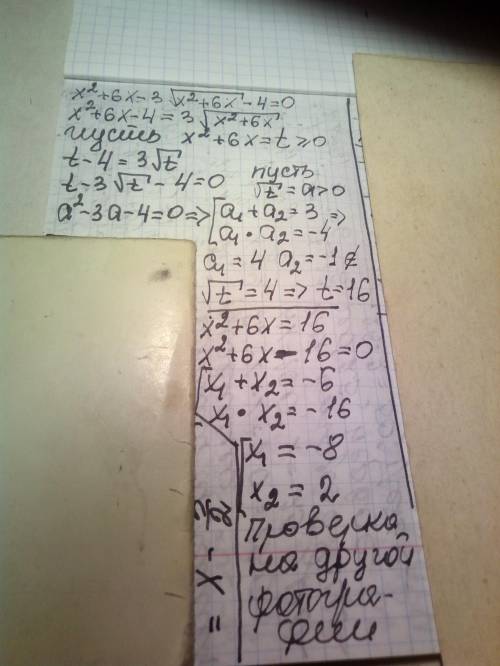 x²+6x-3√(x²+6x)-4=0
x²+6x-4=3√(x²+6x)
пусть x²+6x=t≥0
t-4=3√t
пусть
t-3√t-4=0 √t=a>0
a²-3a-4=0=>[a₁+a₂=3 =>
a₁·a₂=-4
a₁=4 a₂=-1∉
√t=4=>t=16
x²+6x=16
x²+6x-16=0
x₁+x₂=-6
x₁·x₂=-16
[x₁=-8
x₂=2
Проверка
на другой
фотогра-
фии